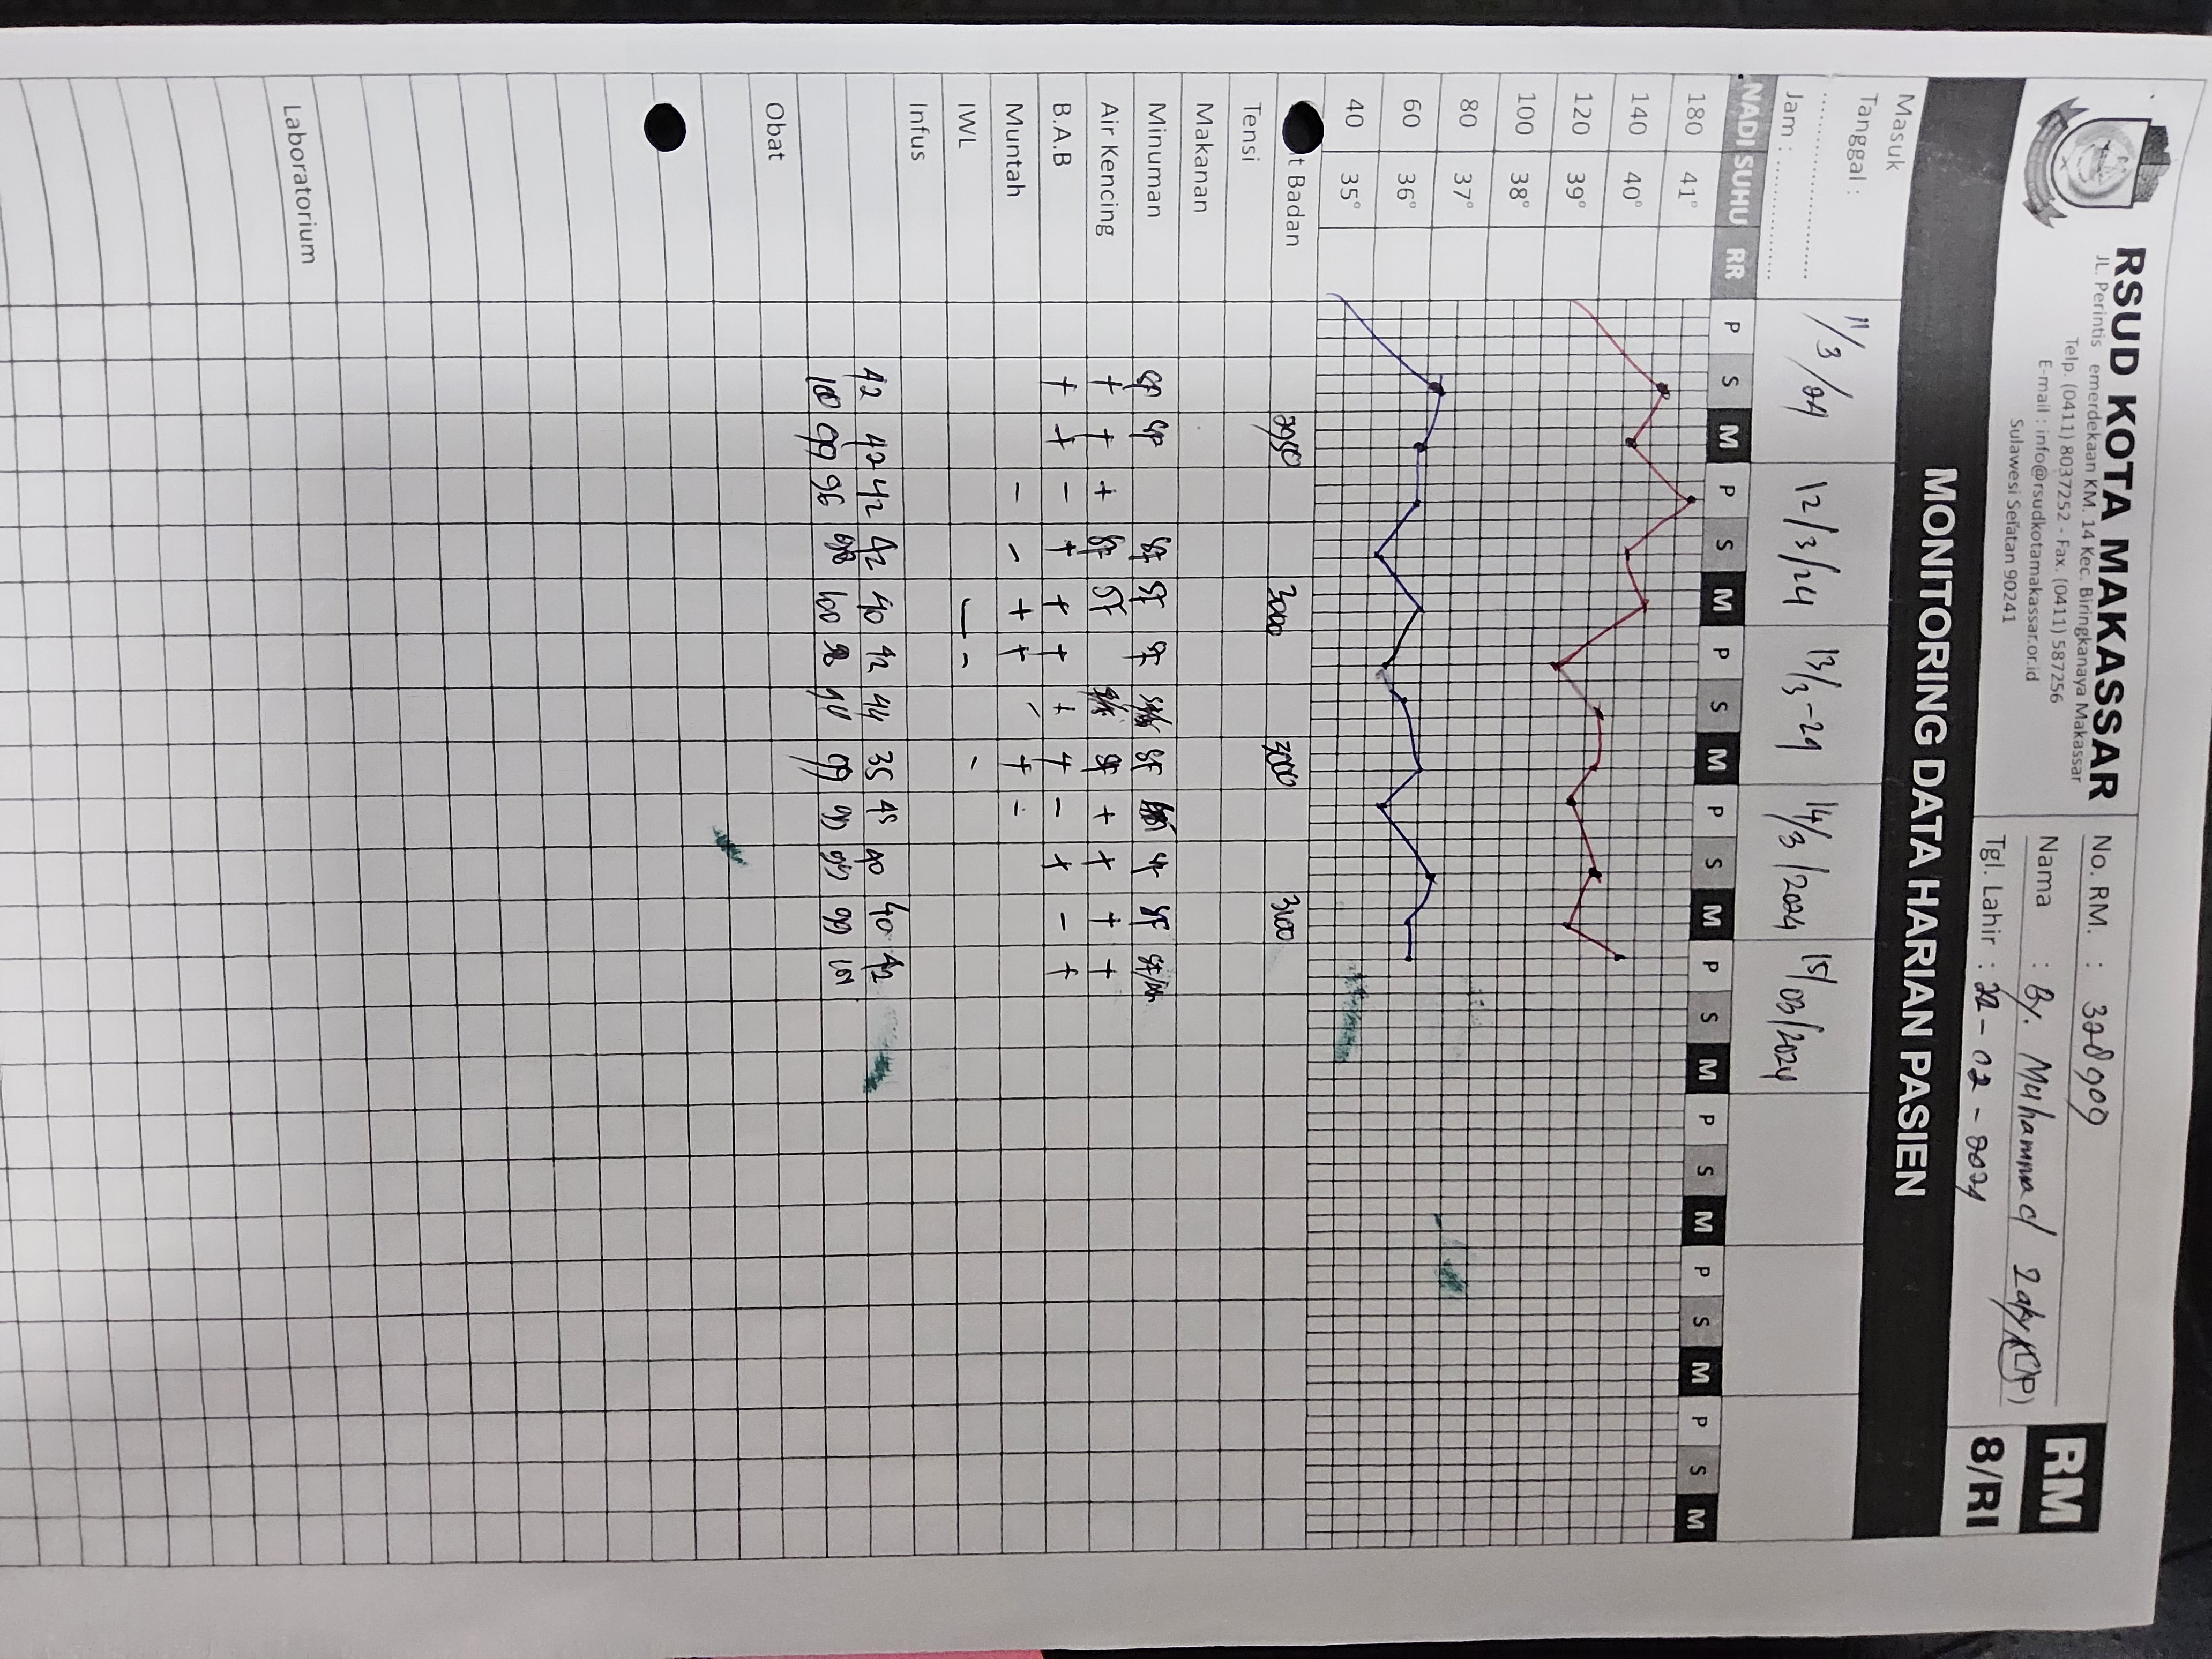 RSUD KOTA MAKASSAR
JL. Perintis emerdekaan KM. 14 Kec. Biringkanaya Makassar
Telp. (0411) 8037252 - Fax. (0411) 587256
E-mail : info@rsudkotamakassar.or.id
Sulawesi Selatan 90241
No. RM. : 328909
Nama : By. Muhammad
Tgl. Lahir : 22-02-2024
RM
8/RI
MONITORING DATA HARIAN PASIEN
Masuk
Tanggal : ....................
Jam : ....................
11/3/24 12/3/24 13/3-24 14/3/2024 15/03/2024
NADI SUHU RR P S M P S M P S M P S M P S M P S M P S M P S M
180 41°
140 40°
120 39°
100 38°
80 37°
60 36°
40 35°
t Badan 2950 3000 3000 3100
Tensi
Makanan
Minuman SF SF SF SF SF SF SF
Air Kencing + + + SF SF SF + + + +
B.A.B + + - + + + + + - + - +
Muntah - - + + + -
IWL - - -
Infus
42 42 42 42 40 42 44 35 40 40 42
100 99 96 98 100 98 94 99 99
Obat
Laboratorium